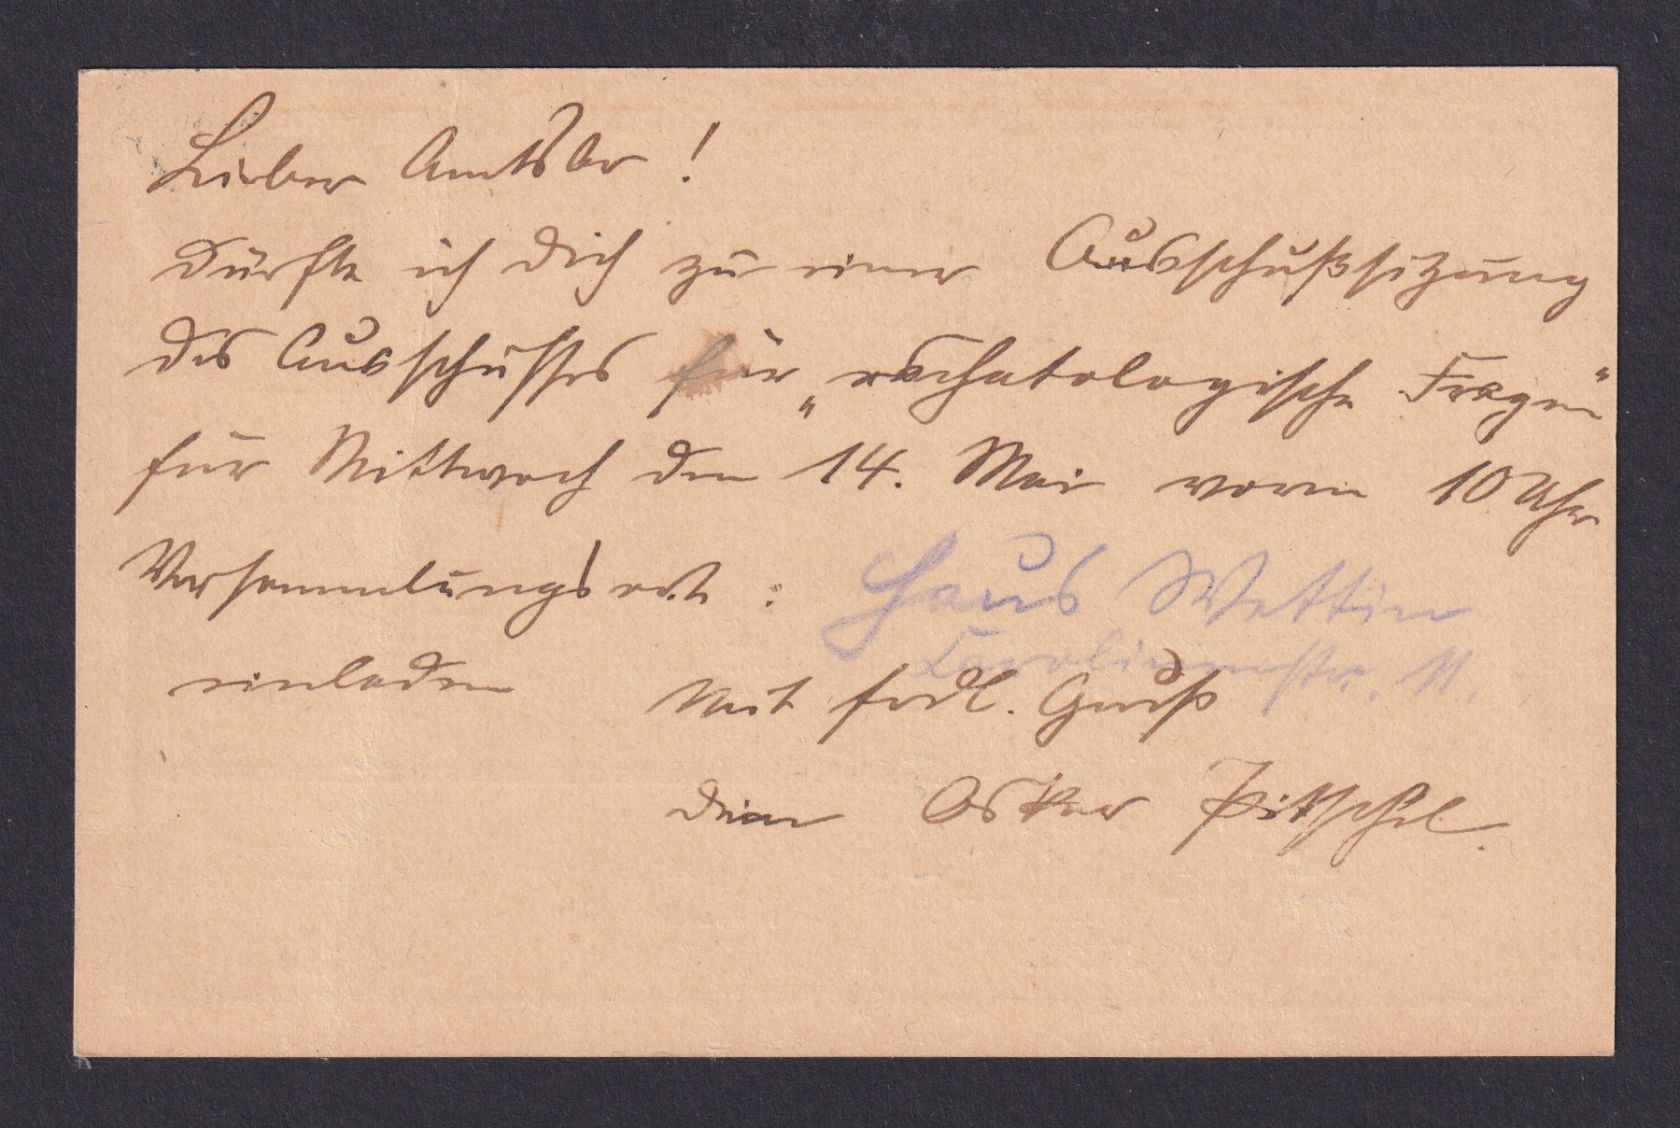 Lieber Amtsbr!
Dürfte ich Dich zu einer Ausschußsitzung
des Ausschusses für „eschatologische Fragen“
für Mittwoch den 14. Mai vorm 10 Uhr
Versammlungsort: Haus Wettin
Carolinenstr. 11.
einladen
Mit frdl. Gruß
Dein Oskar Pitschel.